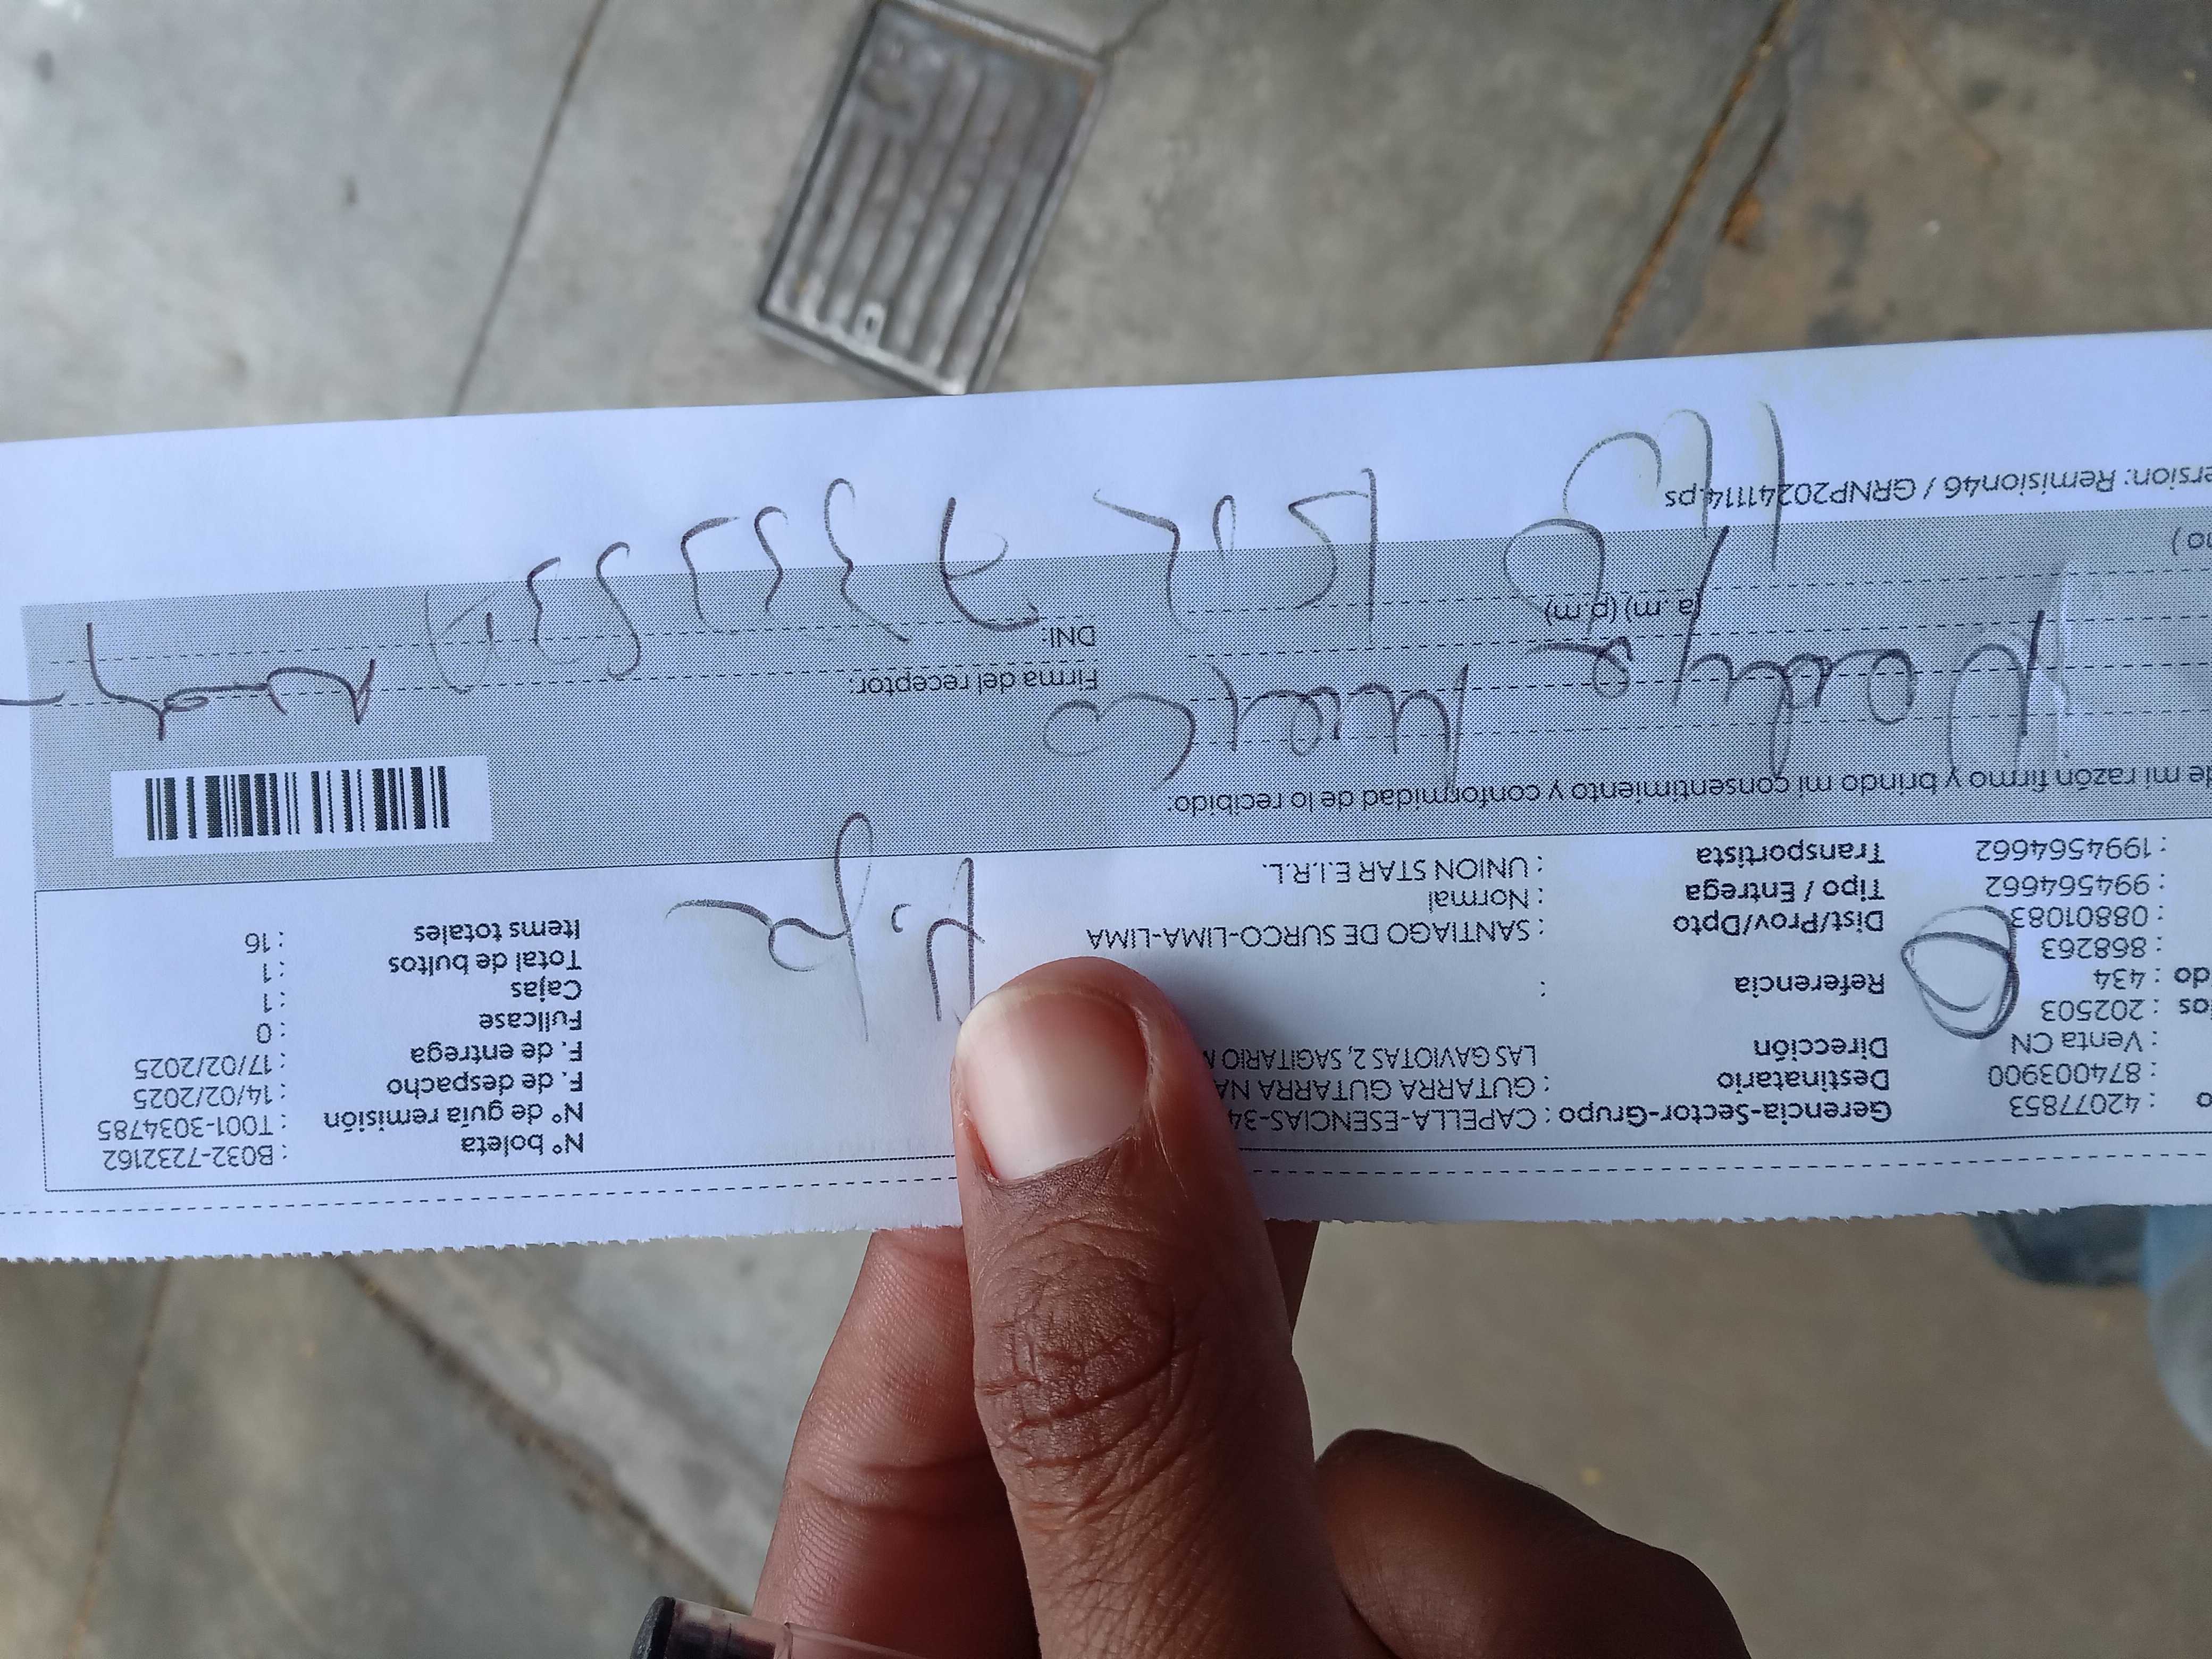 o : 42077853 Gerencia-Sector-Grupo : CAPELLA-ESENCIAS-34 N° boleta : B032-7232162
: 874003900 Destinatario : GUTARRA GUTARRA NA N° de guía remisión : T001-3034785
: Venta CN Dirección LAS GAVIOTAS 2, SAGITARIO M F. de despacho : 14/02/2025
os : 202503 F. de entrega : 17/02/2025
do : 434 Referencia : Fullcase : 0
: 868263 Cajas : 1
: 08801083 Dist/Prov/Dpto : SANTIAGO DE SURCO-LIMA-LIMA Total de bultos : 1
: 994564662 Tipo / Entrega : Normal Items totales : 16
: 1994564662 Transportista : UNION STAR E.I.R.L.
de mi razón firmo y brindo mi consentimiento y conformidad de lo recibido:
Firma del receptor:
DNI:
(a .m) (p.m)
no )
ersion: Remision46 / GRNP20241114.ps